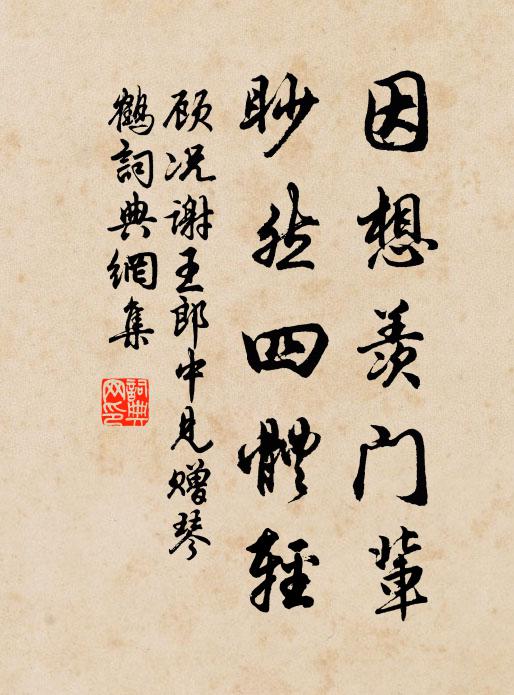 因想羡门輩
眇然四體輕
顾况谢王郎中见赠琴
鶴詞典網集
詞典网印